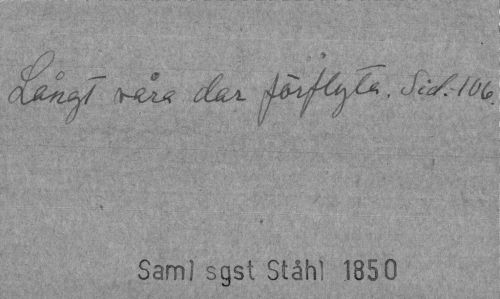 Långt våra dar förflyta. Sid. 106.
Saml sgst Ståhl 1850